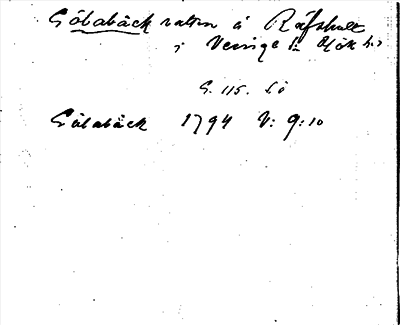 Gölabäck vattn å Räfshult
i Veinge sn Hök h.
S. 115. Lö
Gölabäck 1794 V: 9:10